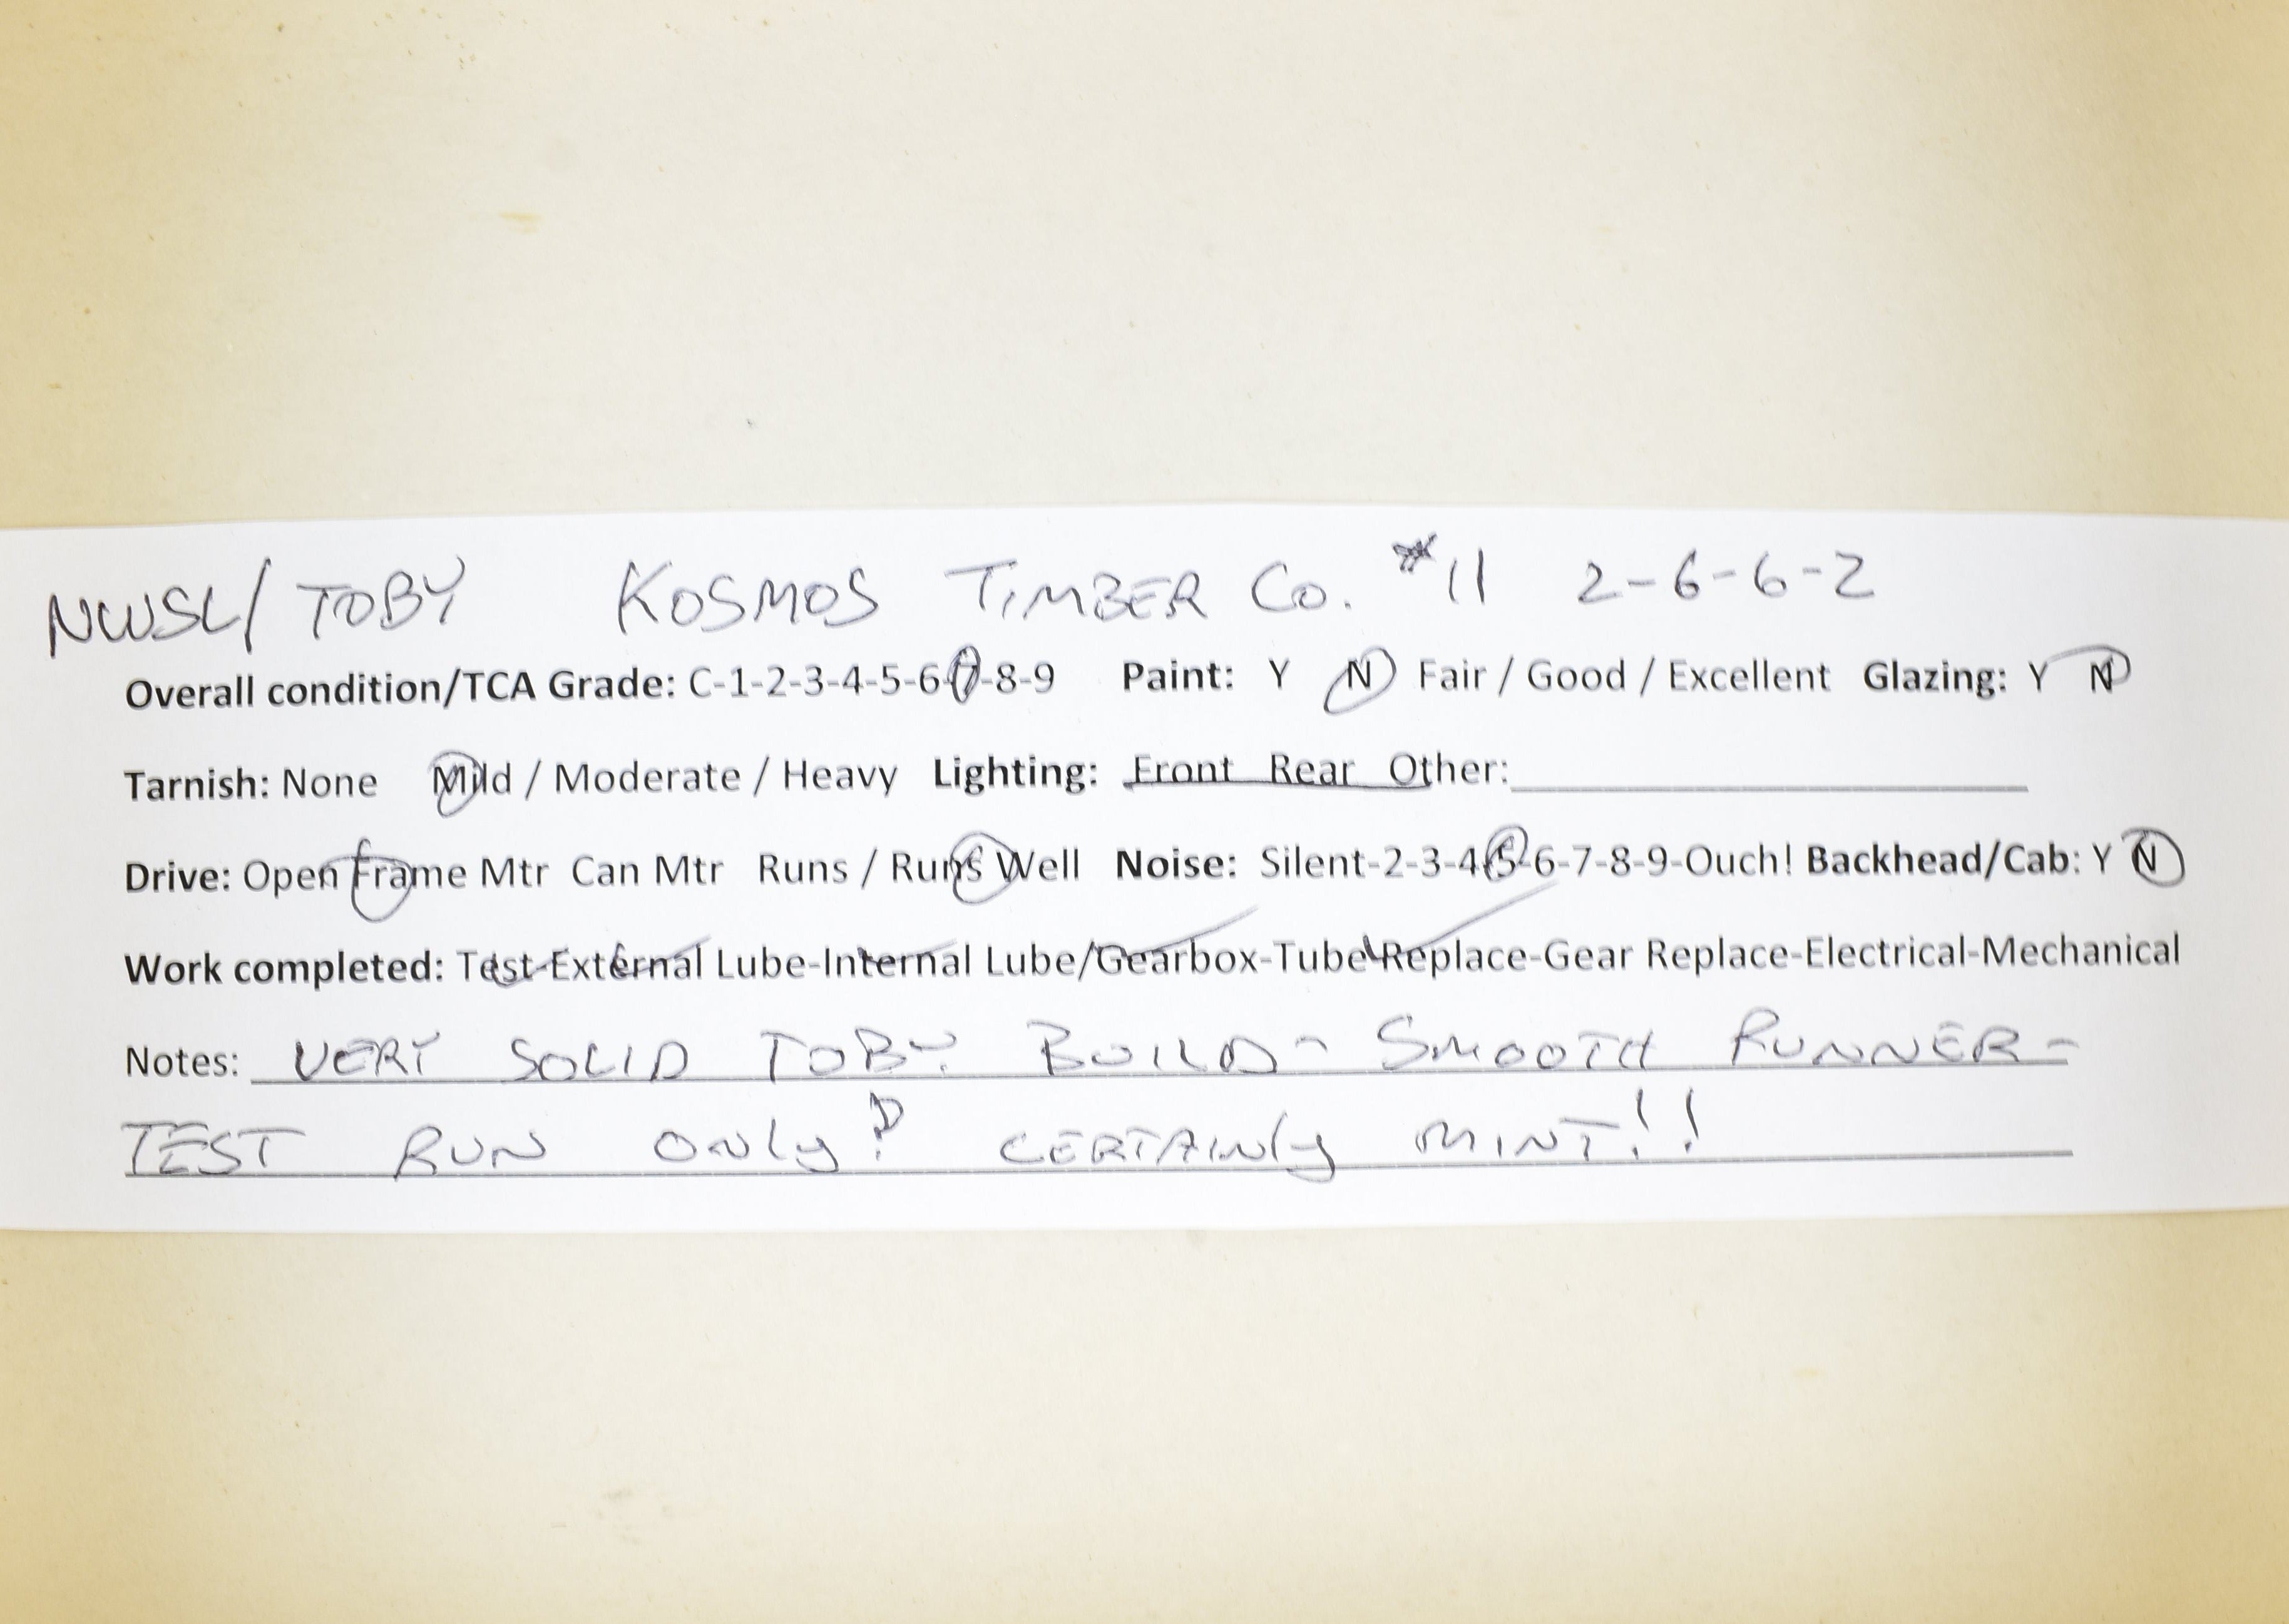 NWSL/TOBY KOSMOS TIMBER Co. #11 2-6-6-2
Overall condition/TCA Grade: C-1-2-3-4-5-6-7-8-9 Paint: Y N Fair / Good / Excellent Glazing: Y N
Tarnish: None Mild / Moderate / Heavy Lighting: Front Rear Other:
Drive: Open Frame Mtr Can Mtr Runs / Runs Well Noise: Silent-2-3-4-5-6-7-8-9-Ouch! Backhead/Cab: Y N
Work completed: Test-External Lube-Internal Lube/Gearbox-Tube Replace-Gear Replace-Electrical-Mechanical
Notes: VERY SOLID TOBY BUILD - SMOOTH RUNNER -
TEST RUN ONLY? CERTAINLY MINT!!